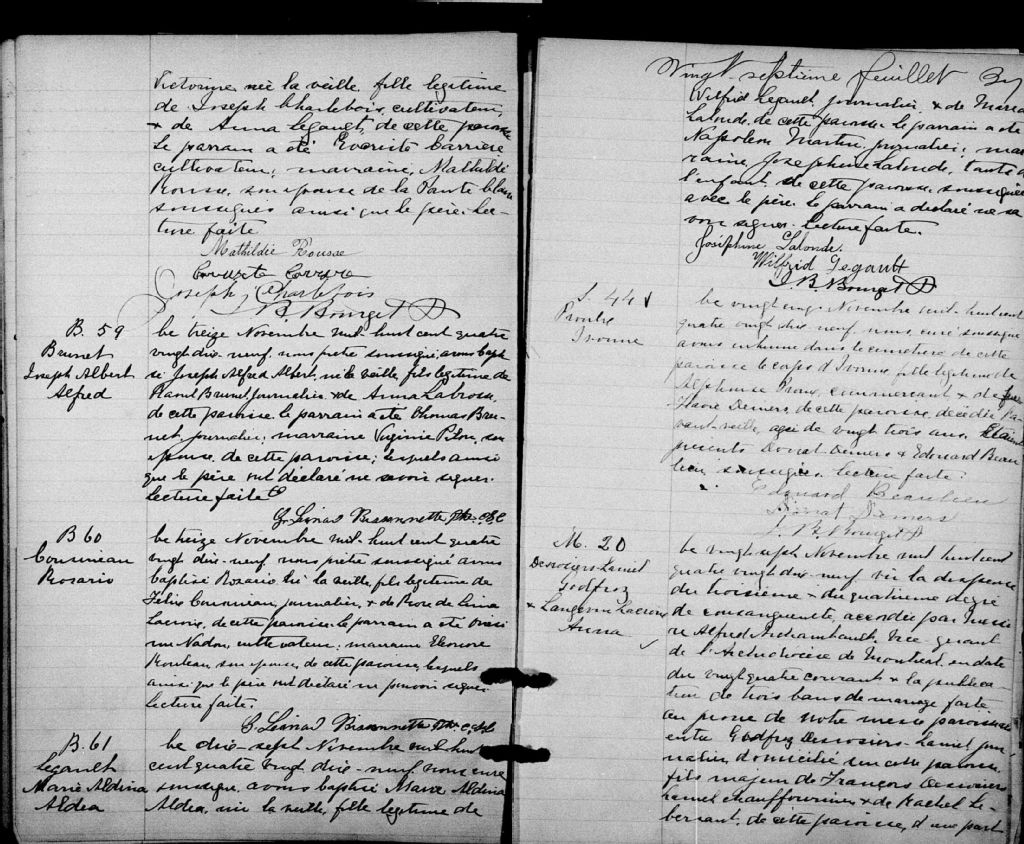 Victorine née la veille, fille légitime
de Joseph Charlebois, cultivateur,
& de Anna Legault, de cette paroisse
Le parrain a été Evariste Carrière
cultivateur; marraine, Mathilde
Rousse, son épouse de la Pointe Claire
soussignés ainsi que le père. Lec-
ture faite
Mathilde Rousse
Joseph Charlebois
J. B. Bourget Ptr
B. 59
Brunet
Joseph Albert
Alfred
Le treize Novembre mil-huit cent quatre
vingt dix-neuf, nous prêtre soussigné, avons bapti-
sé Joseph Alfred Albert, né la veille, fils légitime de
Raoul Brunet, journalier & de Anna Labrosse,
de cette paroisse. Le parrain a été Thomas Bru-
net, journalier; marraine Virginie Pilon, son
épouse, de cette paroisse; lesquels ainsi
que le père ont déclaré ne savoir signer.
Lecture faite
B 60
Cousineau
Rosario
Le treize Novembre mil-huit cent quatre
vingt dix-neuf, nous prêtre soussigné avons
baptisé Rosario né la veille, fils légitime de
Félix Cousineau, journalier, & de Rose de Lima
Lacroix, de cette paroisse. Le parrain a été
Nadon, cultivateur; marraine Eleonore
son épouse, de cette paroisse, lesquels
ainsi que le père ont déclaré ne pouvoir signer
Lecture faite.
B. 61
Legault
Marie Aldina
Aldea
Le dix-sept Novembre mil huit
cent quatre vingt dix-neuf, nous curé
soussigné, avons baptisé Marie Aldina
Aldea, née la veille, fille légitime de
Vingt-septième feuillet
Wilfrid Legault, journalier & de Marie
Lalonde, de cette paroisse. Le parrain a été
Napoléon Martin, journalier; mar-
raine, Josephine Lalonde, tante de
l'enfant, de cette paroisse, soussignée
avec le père. Le parrain a déclaré ne sa-
voir signer. Lecture faite.
Joséphine Lalonde.
Wilfrid Legault
J. B. Bourget Ptr
S. 44
Proulx
Ivonne
Le vingt Novembre mil-huit cent
quatre vingt dix neuf, nous, curé soussigné
avons inhumé dans le cimetière de cette
paroisse le corps d'Ivonne, fille légitime de
Alphonse Proulx, commerçant & de feue
Demers, de cette paroisse, décédée l'a-
vant-veille, agée de vingt trois ans. Etaient
présents Donat Demers & Edouard Beau-
lieu soussignés. Lecture faite.
Edouard Beaulieu
Donat Demers
J. B. Bourget Ptr
M. 20
Desrosiers-Lamel
Godfroy
& Langevin Lacroix
Anna
Le vingt sept Novembre mil huit cent
quatre vingt dix-neuf, vu la dispense
du troisième & du quatrième degré
de consanguinité, accordée par Messi-
re Alfred Archambault, Vice gérant
de l'Archidiocèse de Montréal, en date
du vingt quatre courant & la publica-
tion de trois bans de mariage faite
au prône de notre messe paroissiale
entre Godfroy Desrosiers-Lamel jour-
nalier, domicilié en cette paroisse,
fils majeur de François Desrosiers
Lamel & de Rachel Le-
, de cette paroisse, d'une part